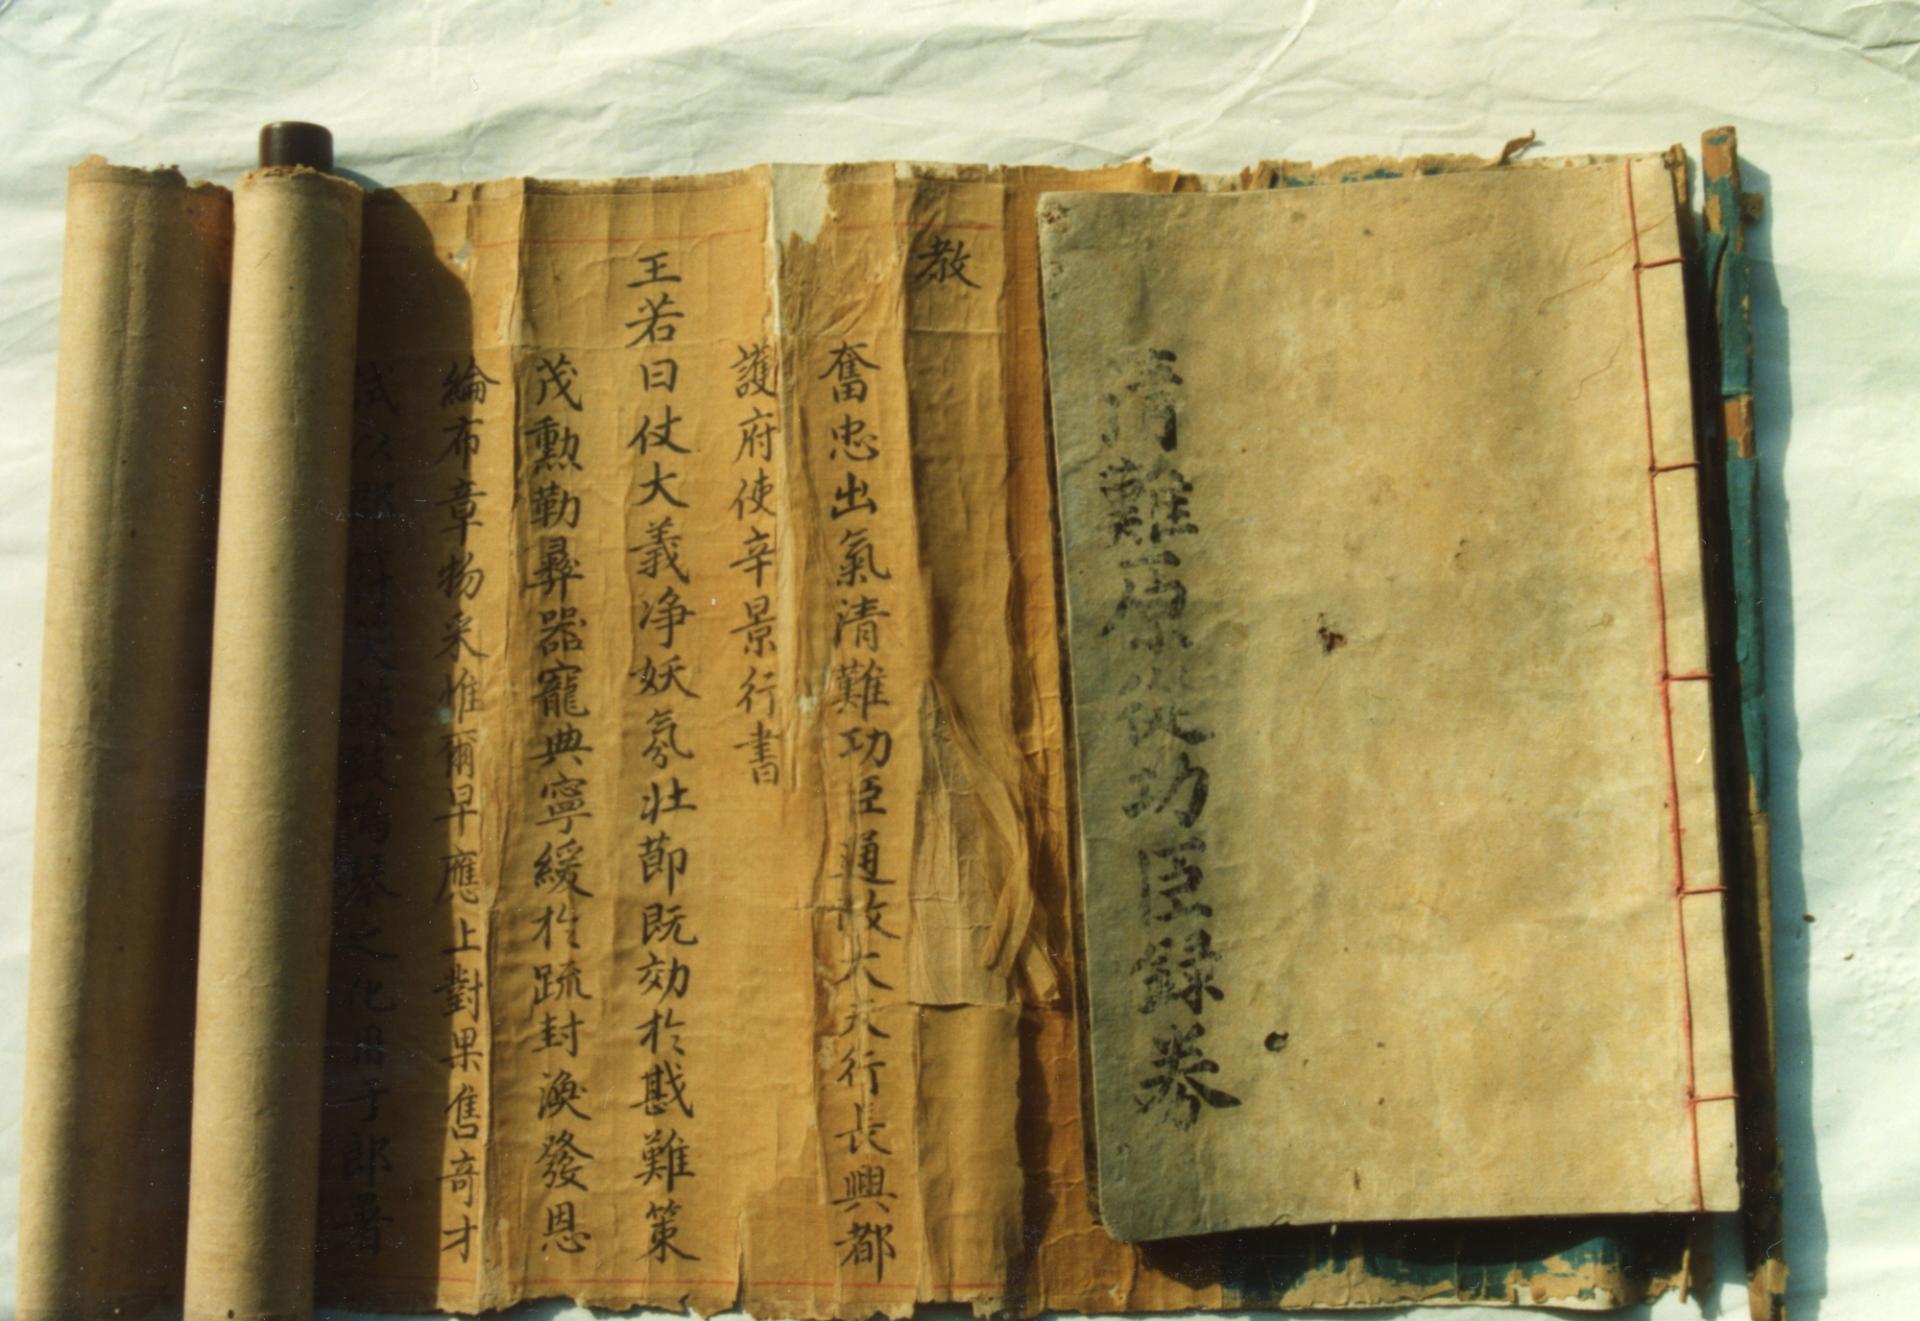 清難原從功臣錄券
教
奮忠出氣清難功臣通政大夫行長興都
護府使辛景行書
王若曰仗大義净妖氛壮莭既効於戡難策
茂勳勒彛器寵典寧緩於䟽封渙發恩
綸布章物采惟爾早應上對果雋奇才
試以郡
之化用于郎署